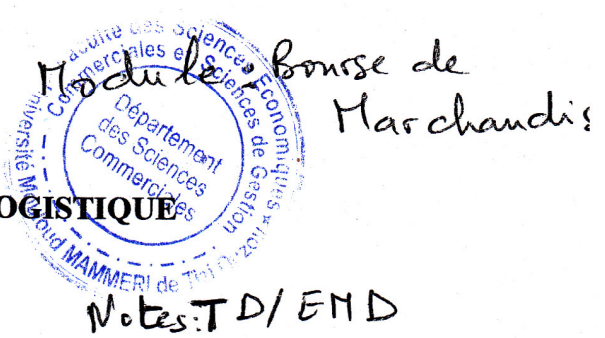 Module : Bourse de
Marchandis
Faculté des Sciences Economiques
Commerciales et Sciences de Gestion
Université Mouloud MAMMERI de Tizi
Département
des Sciences
Commerciales
OGISTIQUE
Notes: TD/ EMD